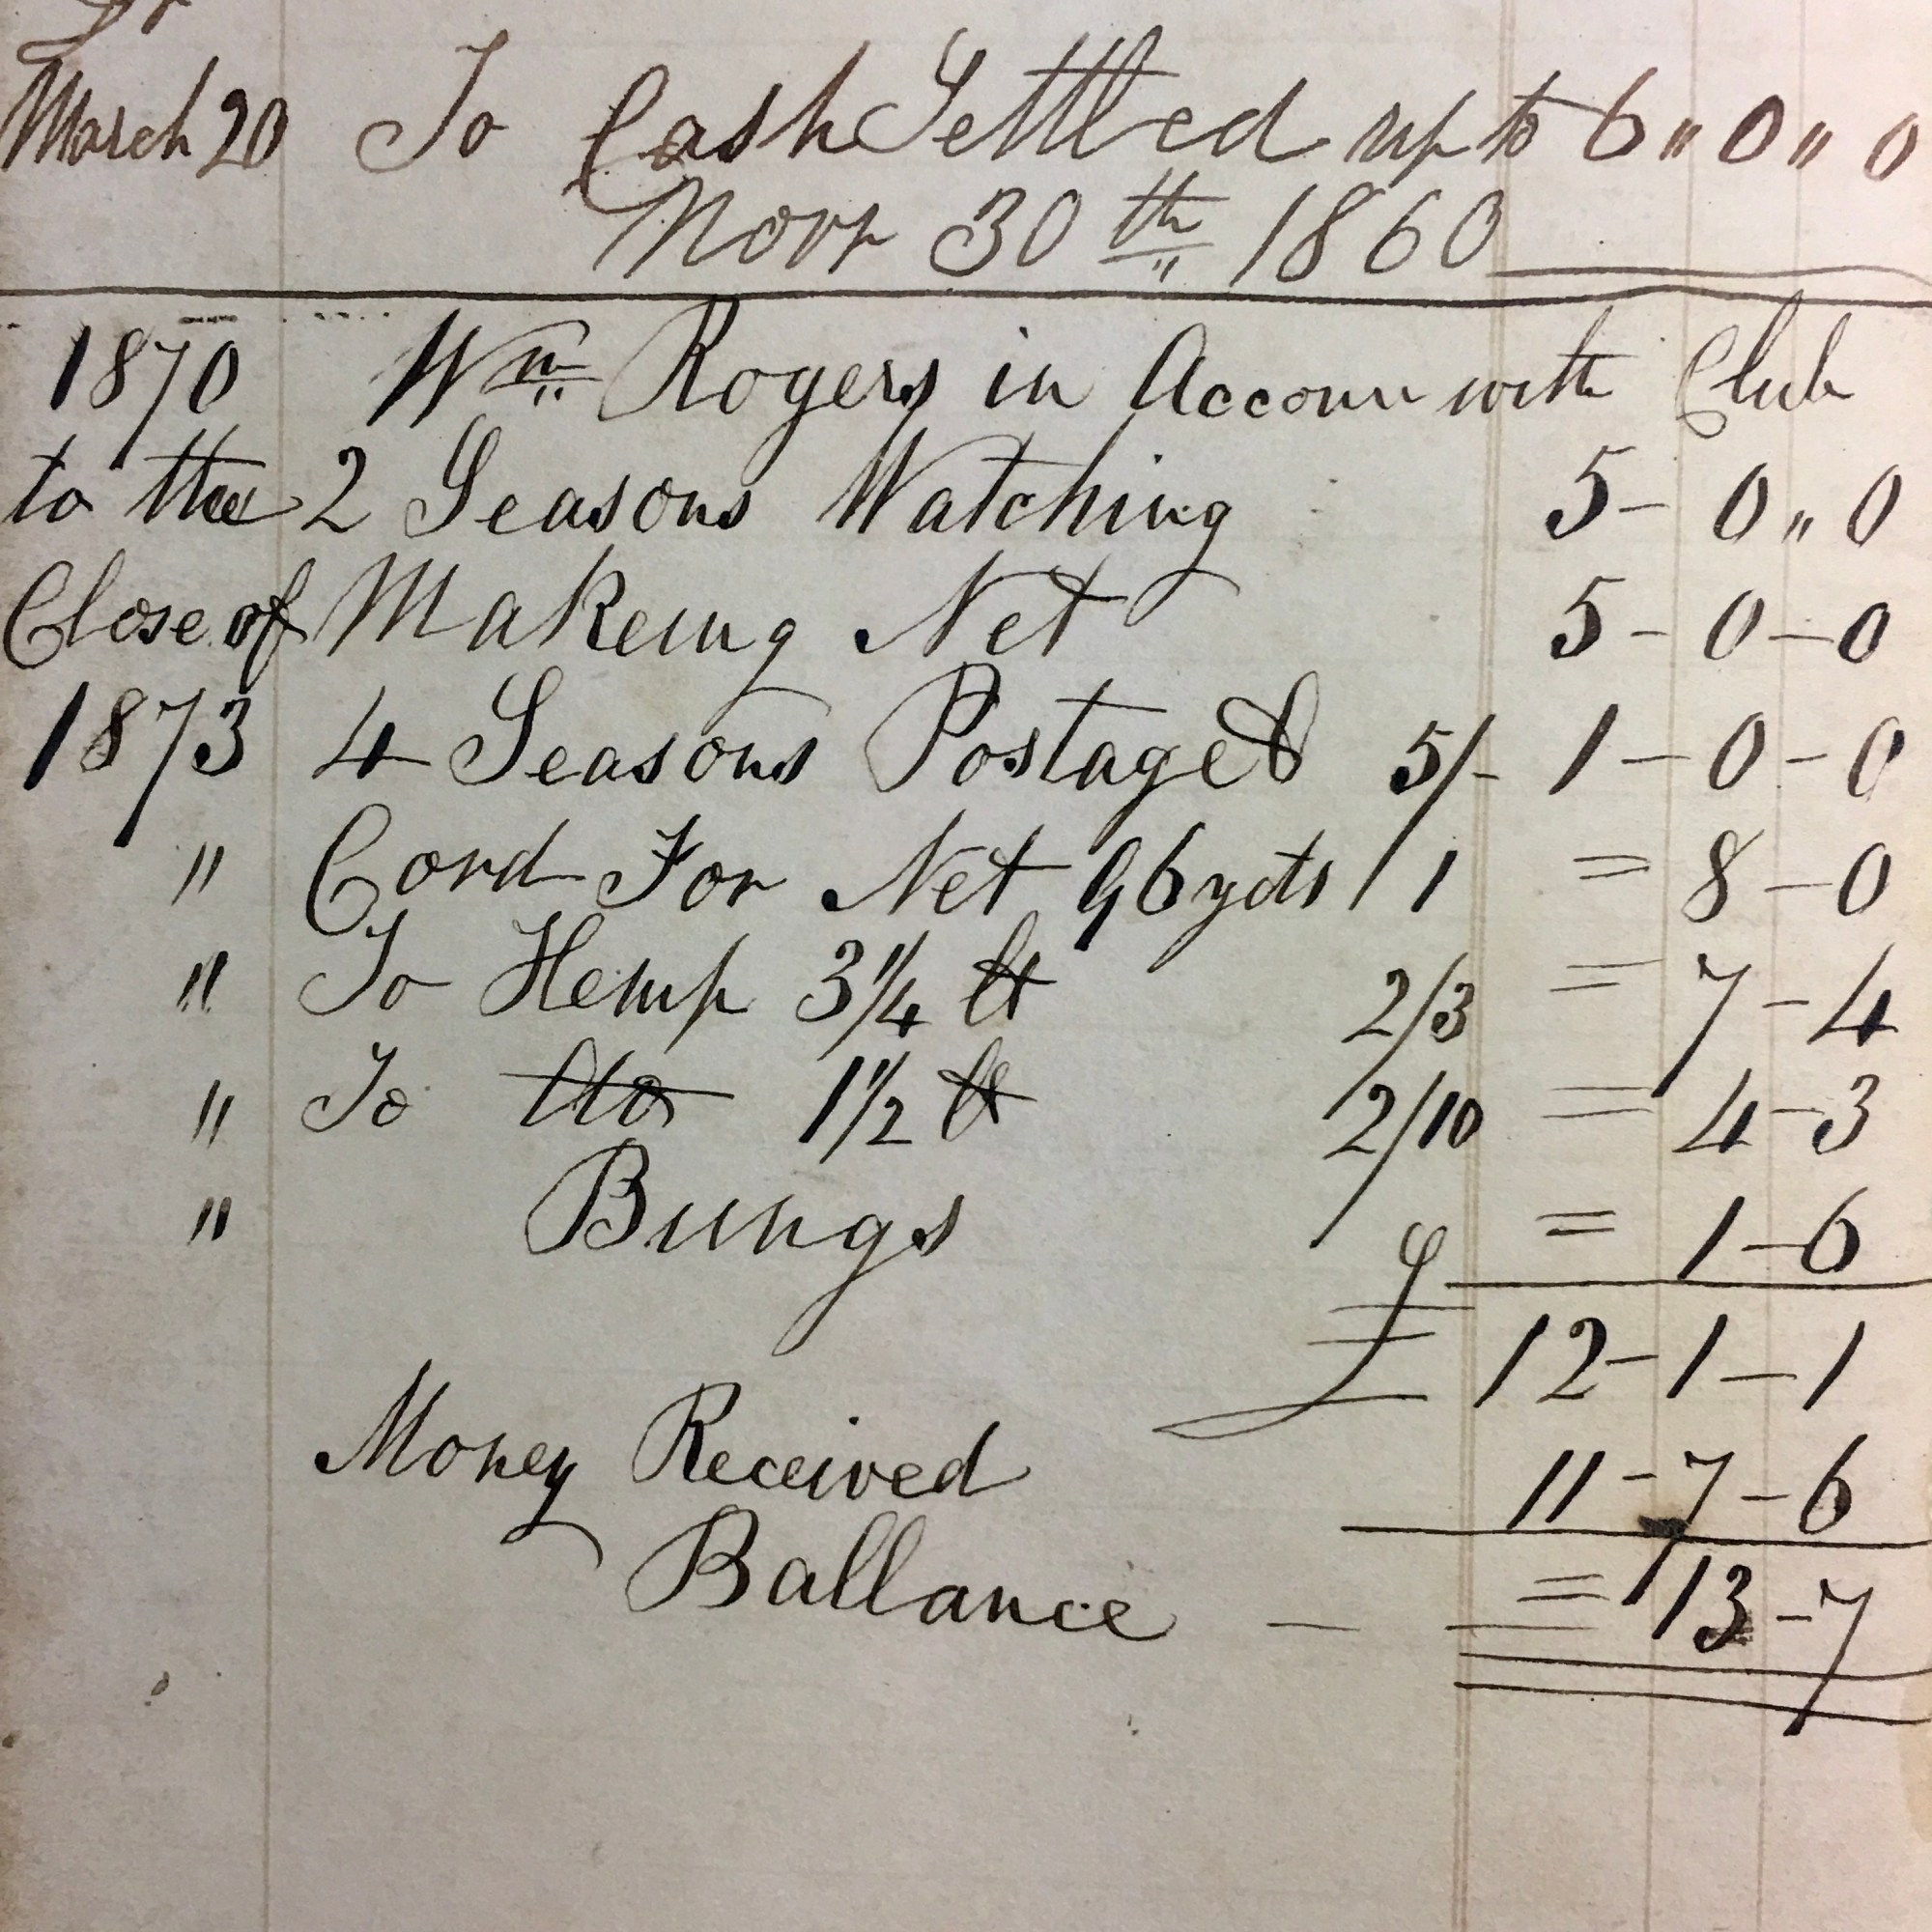 March 20 To Cash Settled up to 6 " 0 " 0
Novr 30th 1860
1870 Wm Rogers in Accoun with Club
to the 2 Seasons Watching 5 - 0 " 0
Close of Makeing Net 5 - 0 - 0
1873 4 Seasons Postage 5/- 1 - 0 - 0
" Cord For Net 96 yds / 1 = 8 - 0
" To Hemp 3 1/4 lb 2/3 = 7 - 4
" To tto 1 1/2 lb 2/10 = 4 - 3
" Bungs = 1 - 6
£ 12 - 1 - 1
Money Received 11 - 7 - 6
Ballance - = 13 - 7